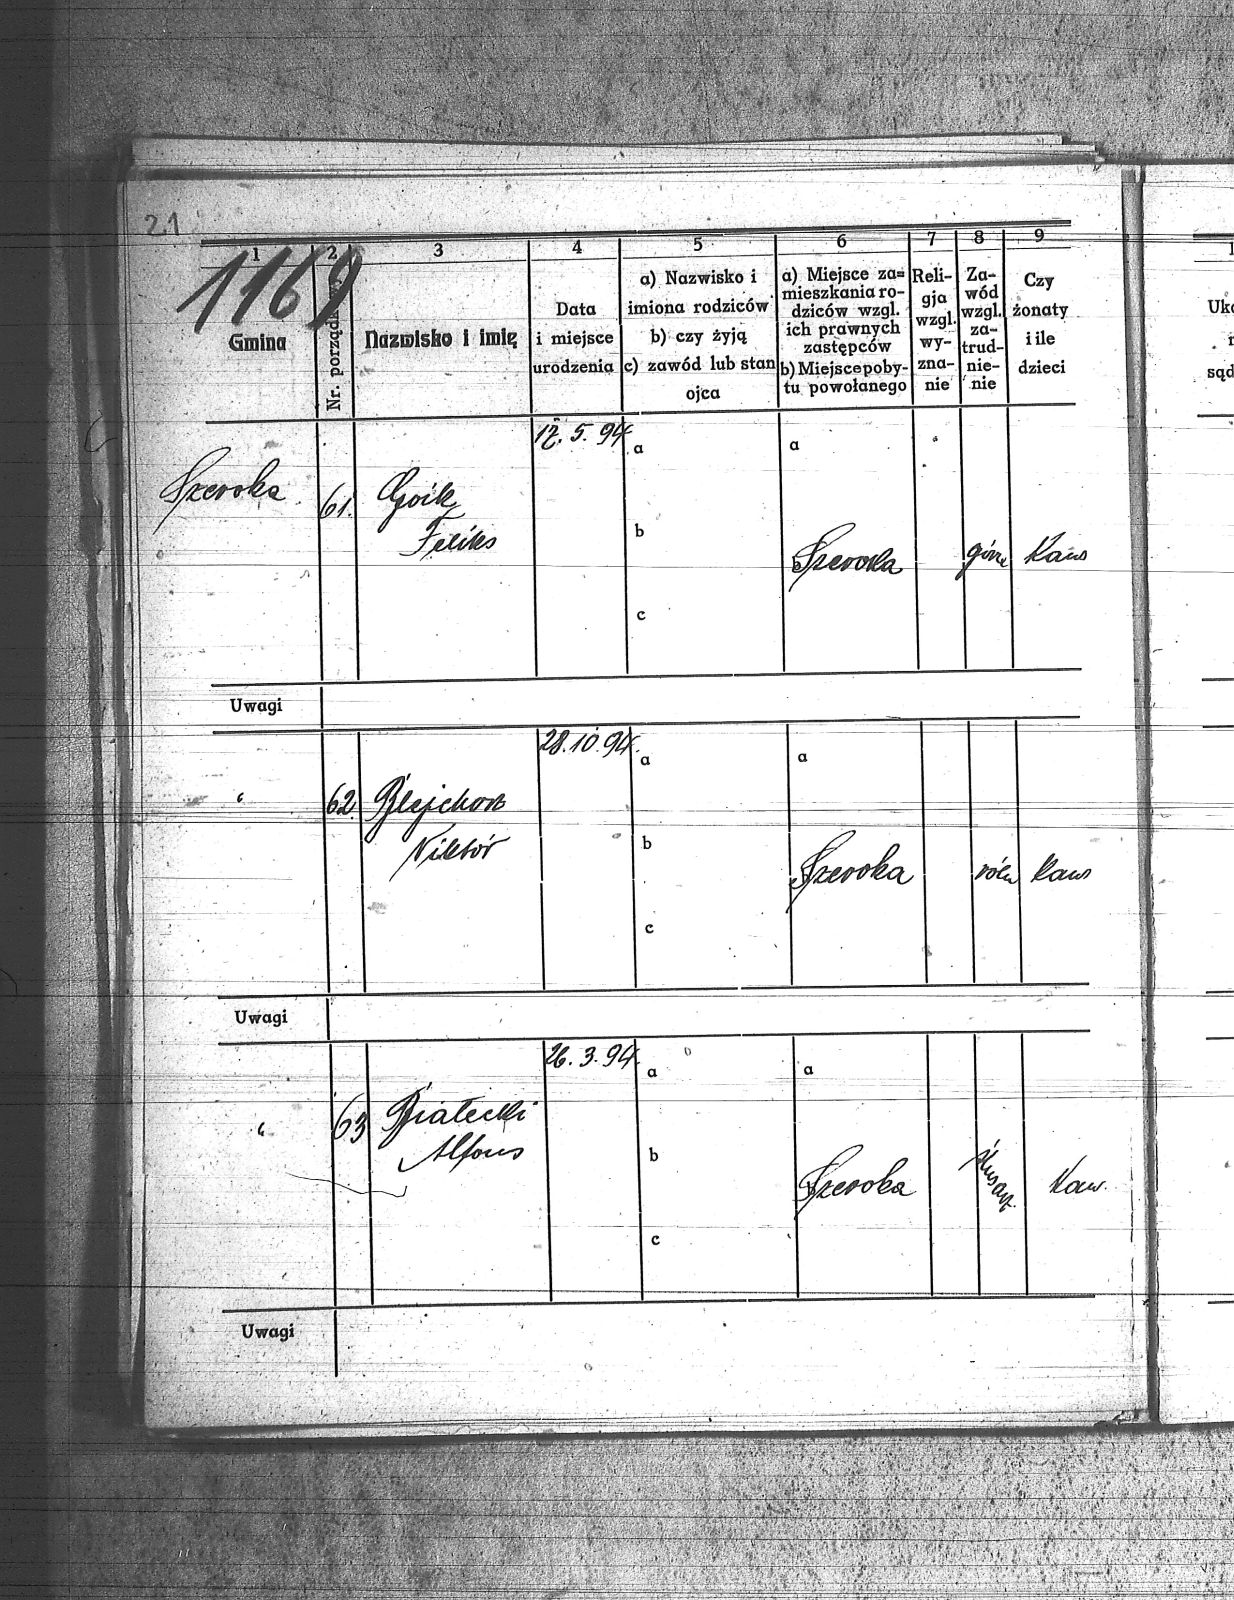 21
1169
1 2 3 4 5 6 7 8 9
Gmina
Nr. porządk
Nazwisko i imię
Data
i miejsce
urodzenia
a) Nazwisko i
imiona rodziców
b) czy żyją
c) zawód lub stan
ojca
a) Miejsce za=
mieszkania ro-
dziców wzgl.
ich prawnych
zastępców
b) Miejsce poby-
tu powołanego
Reli-
gja
wzgl.
wy-
zna-
nie
Za-
wód
wzgl.
za-
trud-
nie-
nie
Czy
żonaty
i ile
dzieci
Szeroka 61. Goik
Feliks
17. 5. 94
a
b
c
a
Szeroka
górn
Kaw
Uwagi
" 62. 
Wiktór
28.10.94.
a
b
c
a
Szeroka
roln
Kaw
Uwagi
" 63 Białecki
Alfons
26. 3. 94.
a
b
c
a
Szeroka
ślusarz.
Kaw.
Uwagi